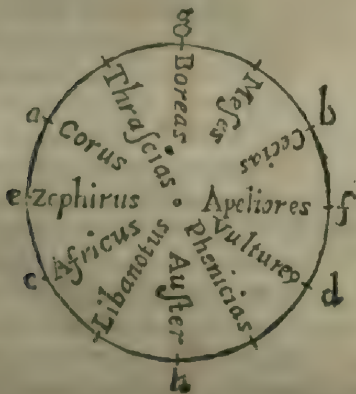 g
Boreas
Meſes
b
Cecias
f
Apeliores
d
Vulturꝰ
Phenicias
h
Auſter
Libanotus
c
Africus
e
zephirus
a
Corus
Thraſcias